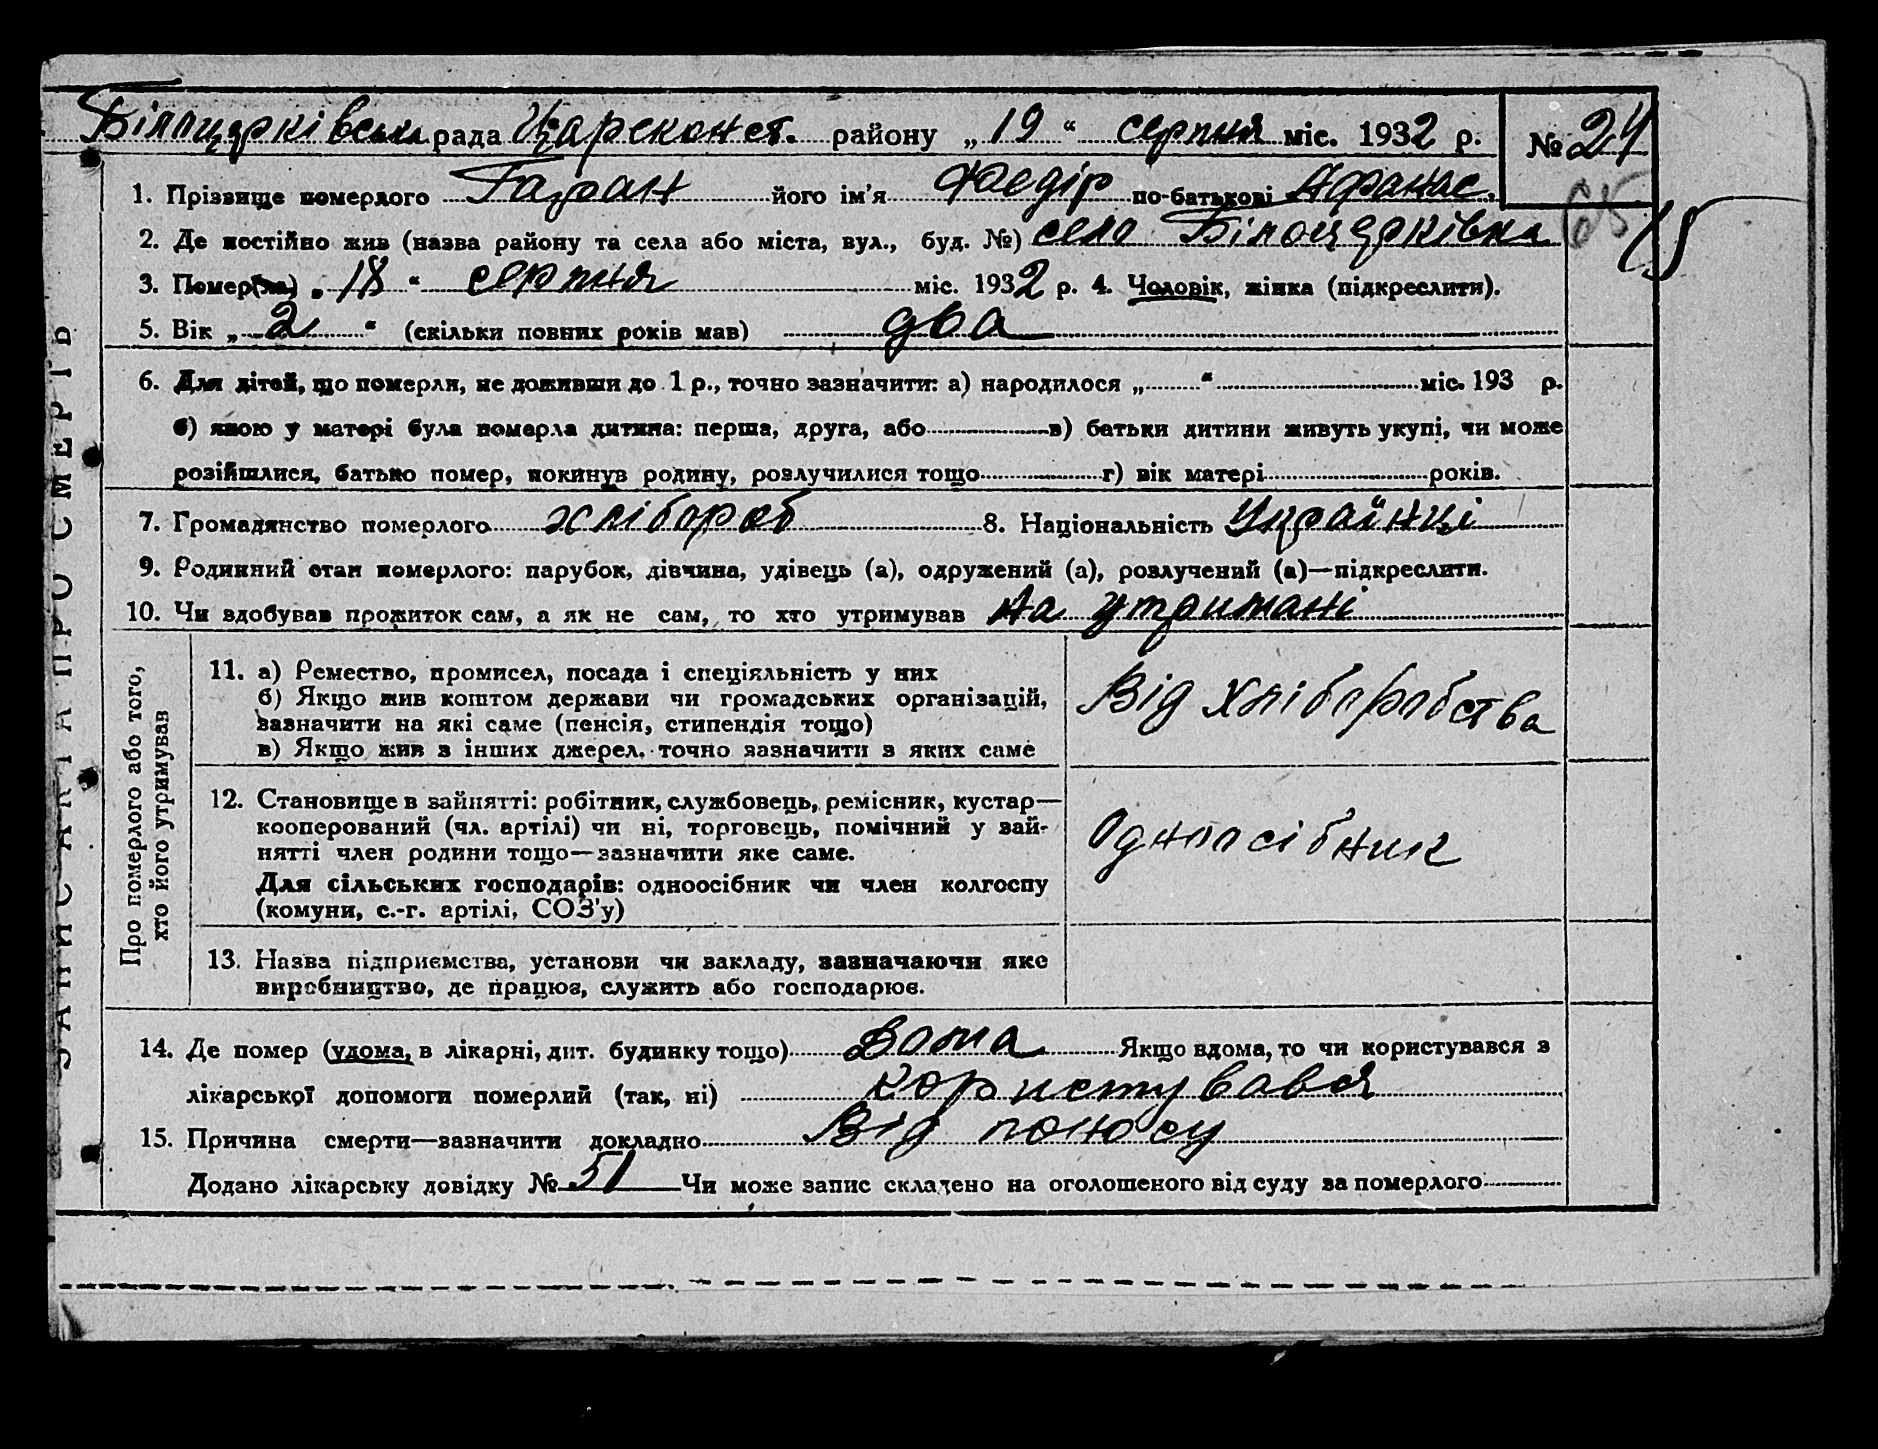 Білоцерківська рада Царсконст. району „ 19 “ серпня міс. 1932 р. № 24
1. Прізвище померлого Гаран його ім'я Федір по-батькові Афанас.
65
2. Де постійно жив (назва району та села або міста, вул., буд. №) село Білоцерківка
3. Помер(ла) „ 18 “ серпня міс. 1932 р. 4. Чоловік, жінка (підкреслити).
5. Вік „ 2 “ (скільки повних років мав) два
6. Для дітей, що померли, не доживши до 1 р., точно зазначити: а) народилося „ “ міс. 193 р.
б) якою у матері була померла дитина: перша, друга, або в) батьки дитини живуть укупі, чи може
розійшлися, батько помер, покинув родину, розлучилися тощо г) вік матері років.
7. Громадянство померлого хлібороб 8. Національність Українці
9. Родинний стан померлого: парубок, дівчина, удівець (а), одружений (а), розлучений (а)—підкреслити.
10. Чи здобував прожиток сам, а як не сам, то хто утримував на утримані
ЗАПИС АКТА ПРО СМЕРТЬ
Про померлого або того,
хто його утримував
11. а) Ремество, промисел, посада і спеціяльність у них
б) Якщо жив коштом держави чи громадських організацій,
зазначити на які саме (пенсія, стипендія тощо)
в) Якщо жив з інших джерел. точно зазначити з яких саме
Від хліборобства
12. Становище в зайнятті: робітник, службовець, ремісник, кустар—
кооперований (чл. артілі) чи ні, торговець, помічний у зай-
нятті член родини тощо—зазначити яке саме.
Для сільських господарів: одноосібник чи член колгоспу
(комуни, с.-г. артілі, СОЗ'у)
Одноосібник
13. Назва підприємства, установи чи закладу, зазначаючи яке
виробництво, де працює, служить або господарює.
14. Де помер (удома, в лікарні, дит. будинку тощо) Дома Якщо вдома, то чи користувався з
лікарської допомоги померлий (так, ні) користувався
15. Причина смерти—зазначити докладно Від поносу
Додано лікарську довідку № 51 Чи може запис складено на оголошеного від суду за померлого